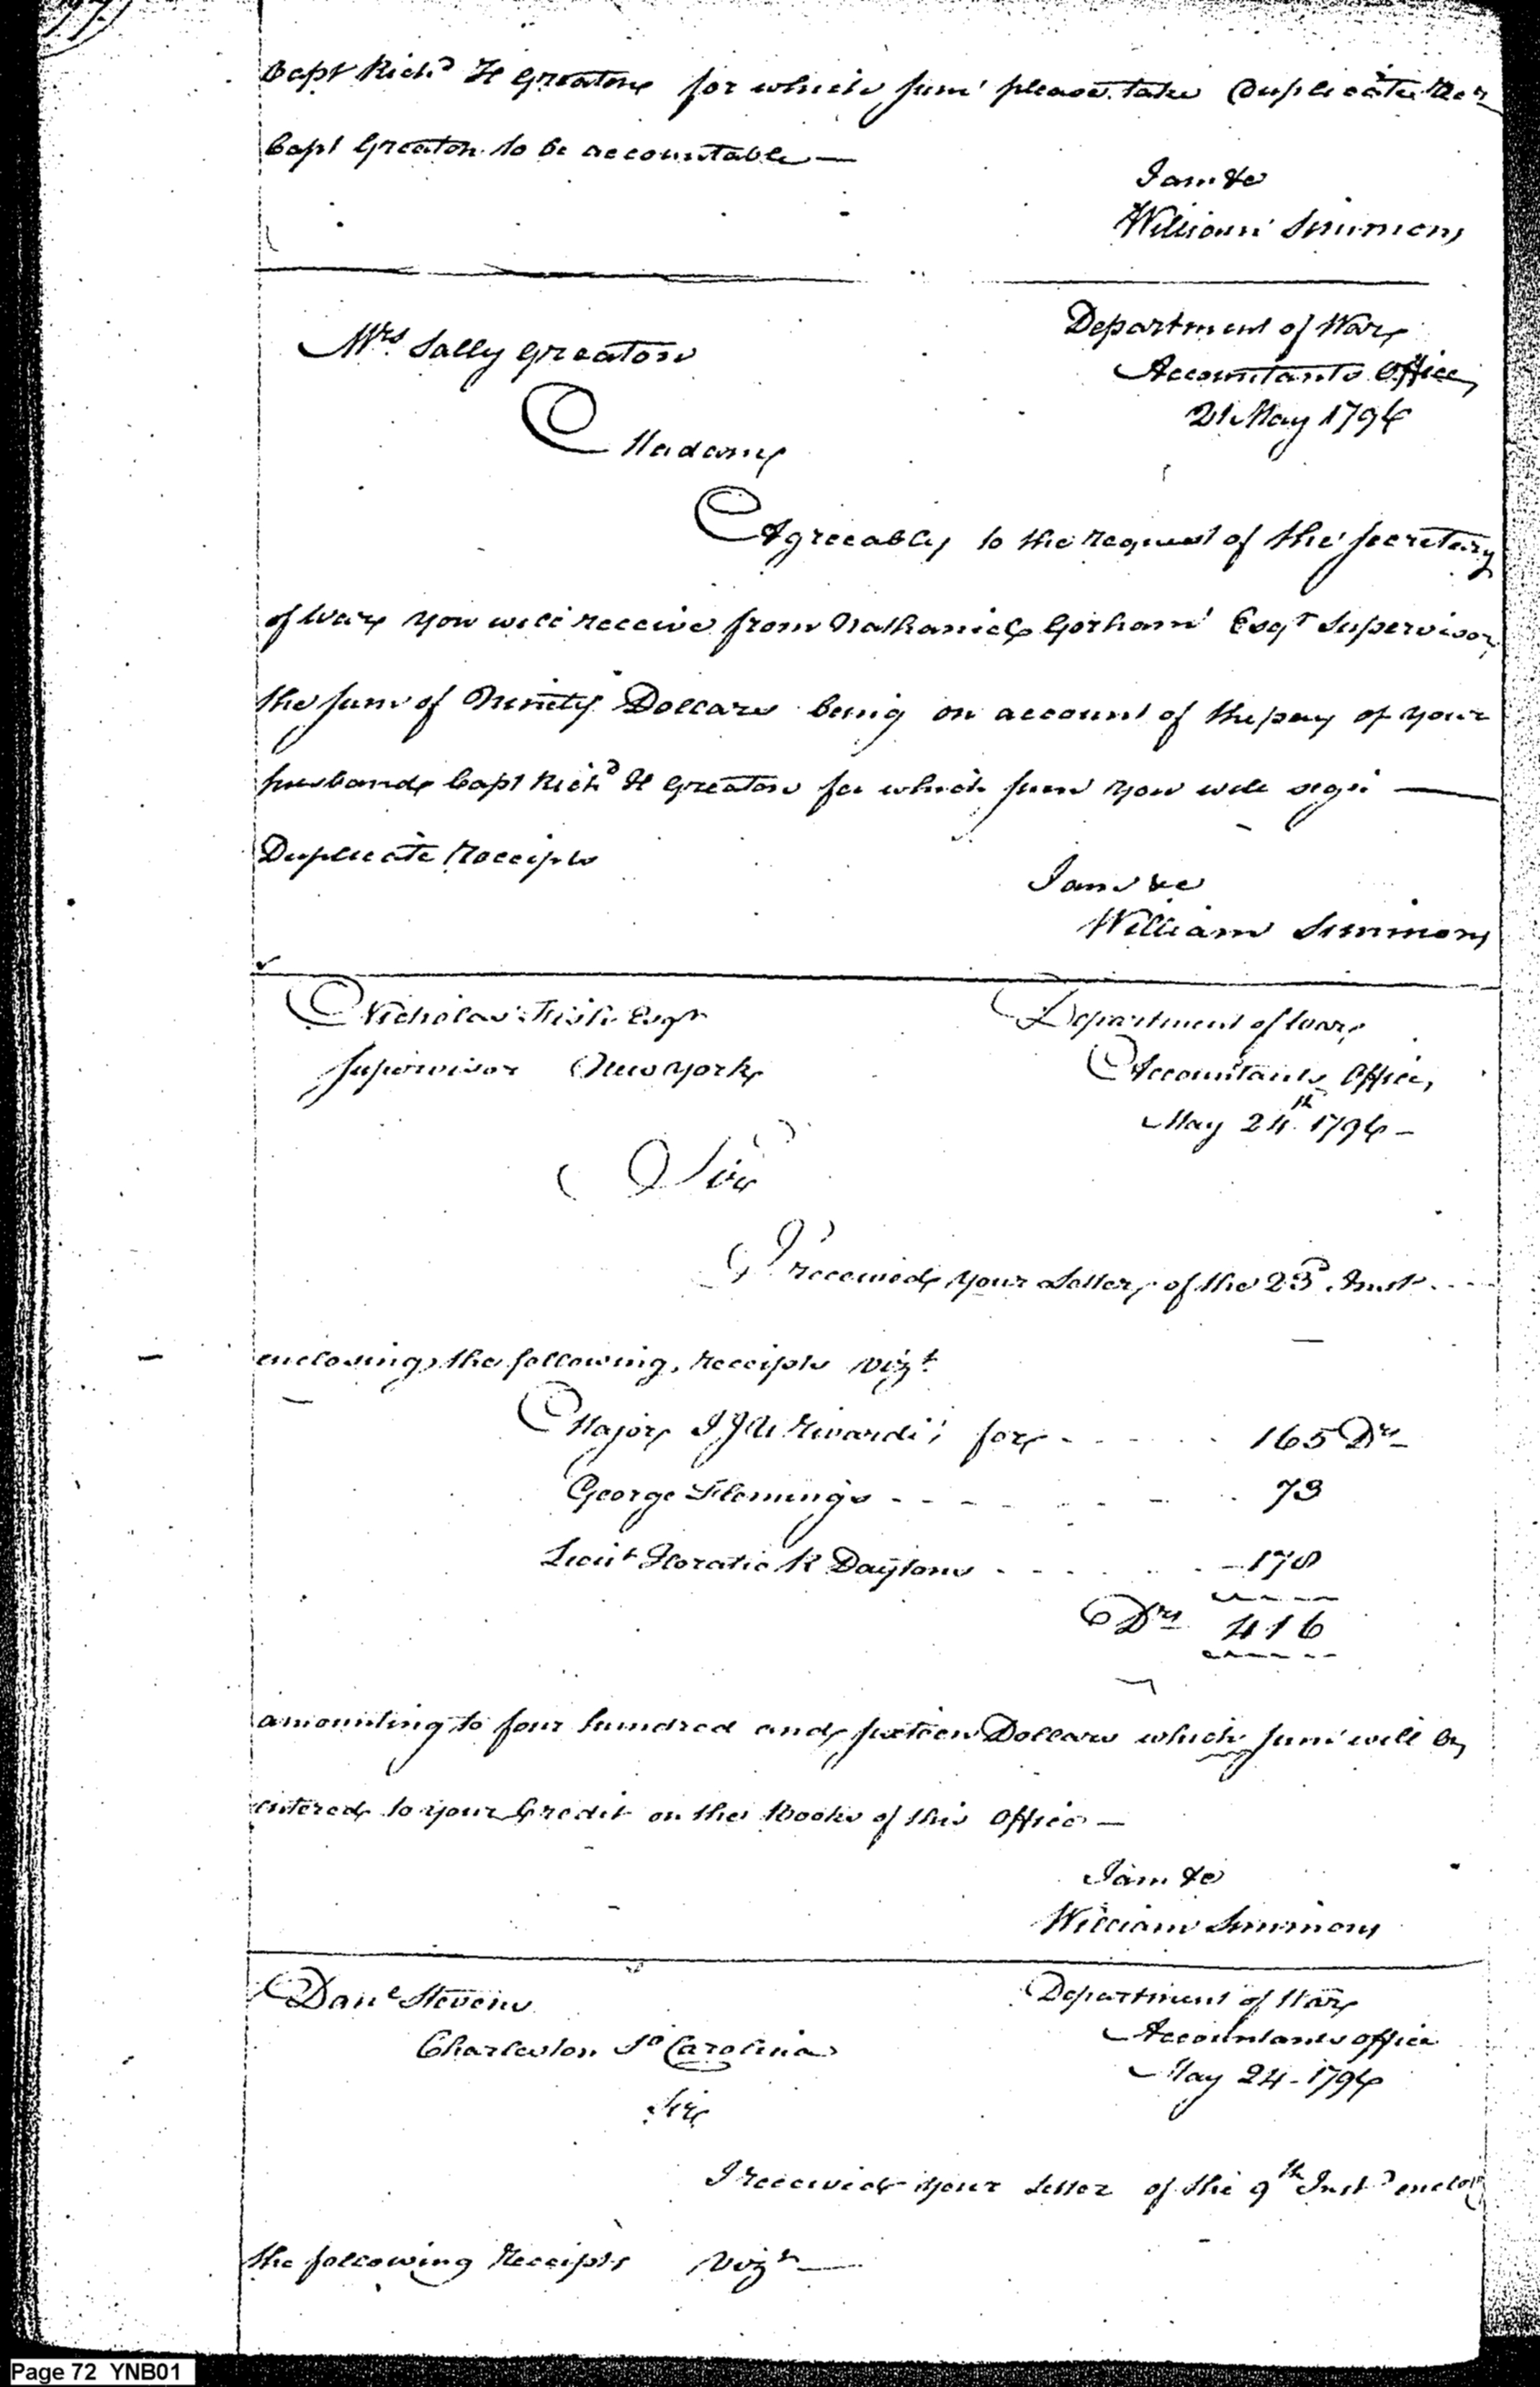 Capt Richd H Greaton for which sum please take Duplicate Rec
Capt Greaton to be accountable —
I am &c
William Simmons
Mrs Sally Greaton
Department of War
Accountants Office
21 May 1796
Madam
Agreeably to the request of the Secretary
of War you will receive from Nathaniel Gorham Esqr Supervisor
the sum of Ninety Dollars being on account of the pay of your
husband Capt Richd H Greaton for which sum you will sign —
Duplicate Receipts
I am &c
William Simmons
Nicholas Fish Esqr
Supervisor New York
Department of War
Accountants Office,
May 24th 1796 —
Sir
I received your Letter of the 23d Inst
enclosing the following receipts vizt
Major J J U Rivardi, for - - - - 165 Drs
George Flemings - - - - - - 73
Lieut Horatio R Daytons - - - - - 178
Drs 416
amounting to four hundred and sixteen Dollars which sum will be
entered to your Credit on the Books of this Office —
I am &c
William Simmons
Danl Stevens
Charleston So Carolina
Department of War
Accountants office
May 24 - 1796
Sir
I received your Letter of the 9th Inst enclosg
the following Receipts vizt —
Page 72 YNB01